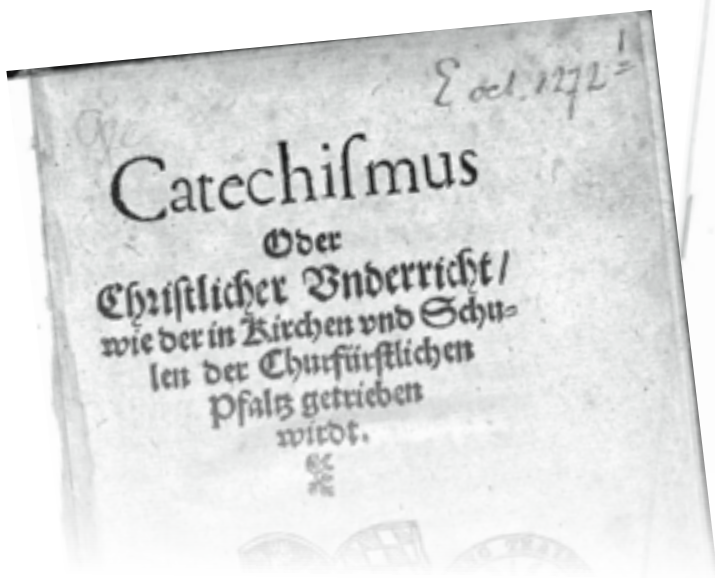 E oct. 1272
Catechiſmus
Oder
Chriſtlicher Vnderricht/
wie der in Kirchen vnd Schu-
len der Churfürſtlichen
Pfaltz getrieben
wirdt.